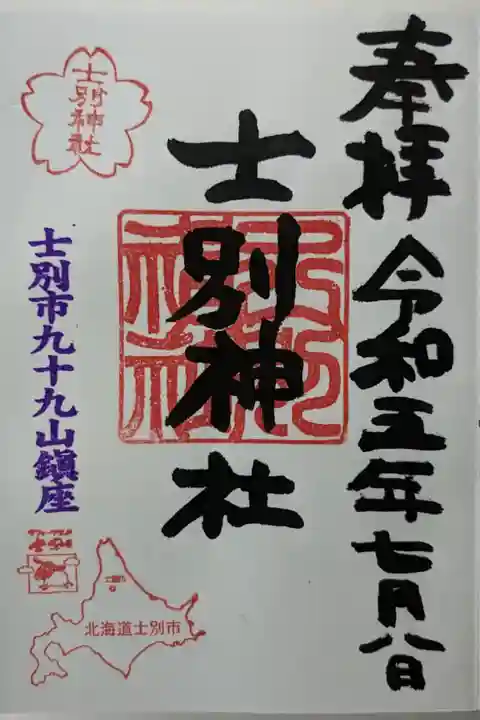 奉拝 令和五年七月八日
士別神社
士別神社
士別市九十九山鎮座
北海道士別市